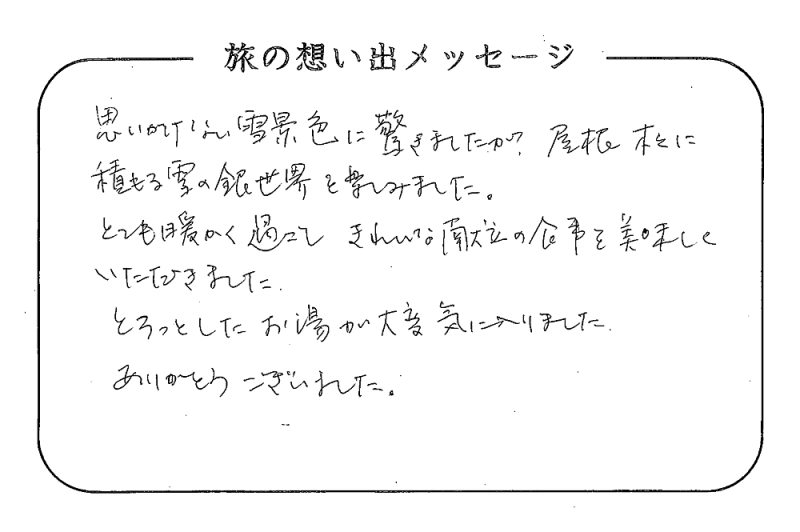 旅の想い出メッセージ
思いがけない雪景色に驚きましたが、屋根 松に
積もる雪の銀世界を楽しみました。
とても暖かく過ごし きれいな献立の食事を美味しく
いただきました.
とろっとしたお湯が大変気に入りました.
ありがとうございました。